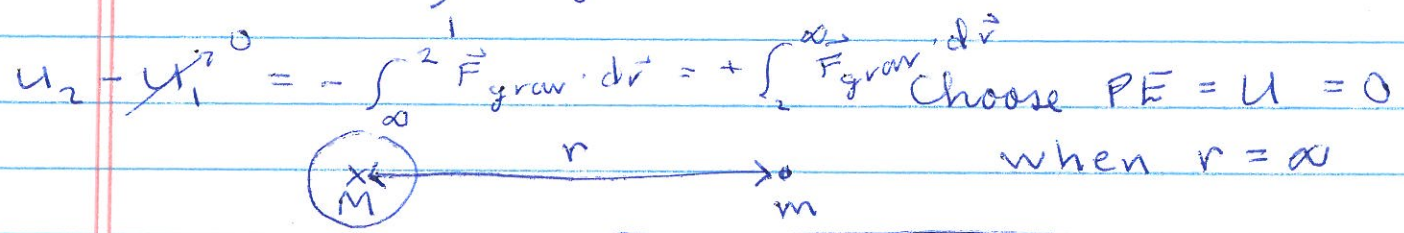 U₂ - U₁ = 0 = - ∫_∞^2 F⃗_grav · dr⃗ = + ∫_2^∞ F⃗_grav · dr⃗ Choose PE = U = 0
r when r = ∞
M m